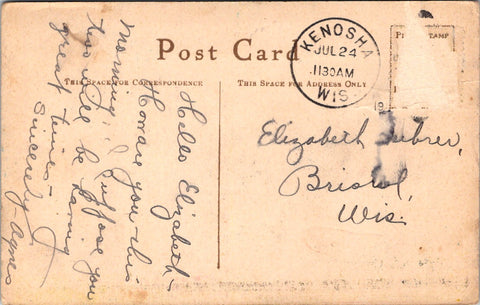 Post Card
THIS SPACE FOR CORRESPONDENCE
THIS SPACE FOR ADDRESS ONLY
KENOSHA
JUL 24
1130AM
WIS.
19
Hello Elizabeth –
How are you this
morning, I suppose you
two will be having
great times –
Sincerely
Agnes
Elizabeth
Bristol,
Wis.